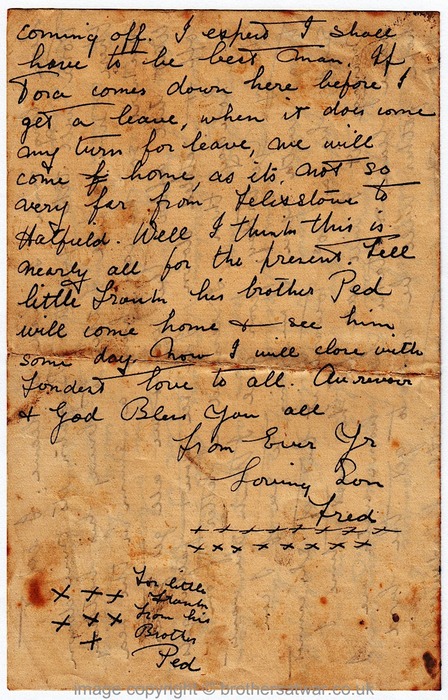 coming off. I expect I shall
have to be best man. If
Dora comes down here before I
get a leave, when it does come
my turn for leave, we will
come home, as its, not so
very far from Felixstowe to
Hatfield. Well I think this is
nearly all for the present. Tell
little Frank his brother Ped
will come home & see him
some day. Now I will close with
Fondest love to all. Au revoir
& God Bless You all
From Ever Yr
Loving Son
Fred
+ + + + + + + + +
x x x x x x x x
x x x For little
Frank
x x x from his
x Brother
Ped
image copyright © brothersatwar.co.uk